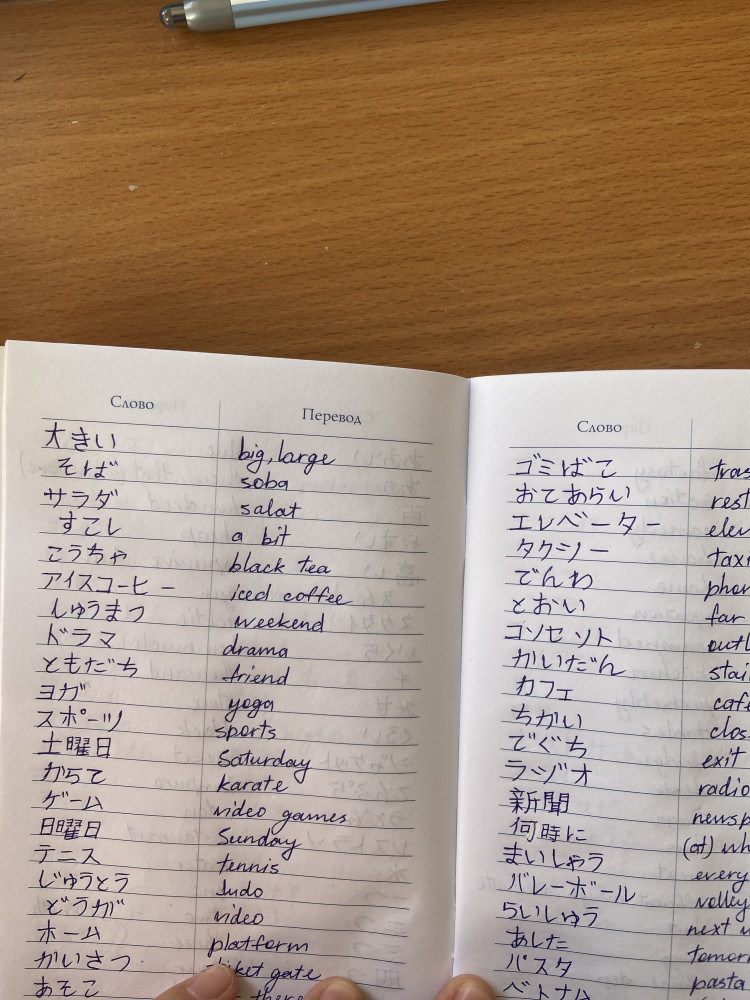 Слово Перевод
大きい big, large
そば soba
サラダ salat
すこし a bit
こうちゃ black tea
アイスコーヒー iced coffee
しゅうまつ weekend
ドラマ drama
ともだち friend
ヨガ yoga
スポーツ sports
土曜日 Saturday
からて karate
ゲーム video games
日曜日 Sunday
テニス tennis
じゅうとう Judo
どうが video
ホーム platform
かいさつ ticket gate
あそこ there
Слово
ゴミばこ tras
おてあらい rest
エレベーター elev
タクシー taxi
でんわ phon
とおい far
コンセント outl
かいだん stai
カフェ cafe
ちかい clos
でぐち exit
ラジオ radio
新聞 newsp
何時に (at) wh
まいしゅう every
バレーボール volley
らいしゅう next w
あした tomor
パスタ pasta
ベトナム